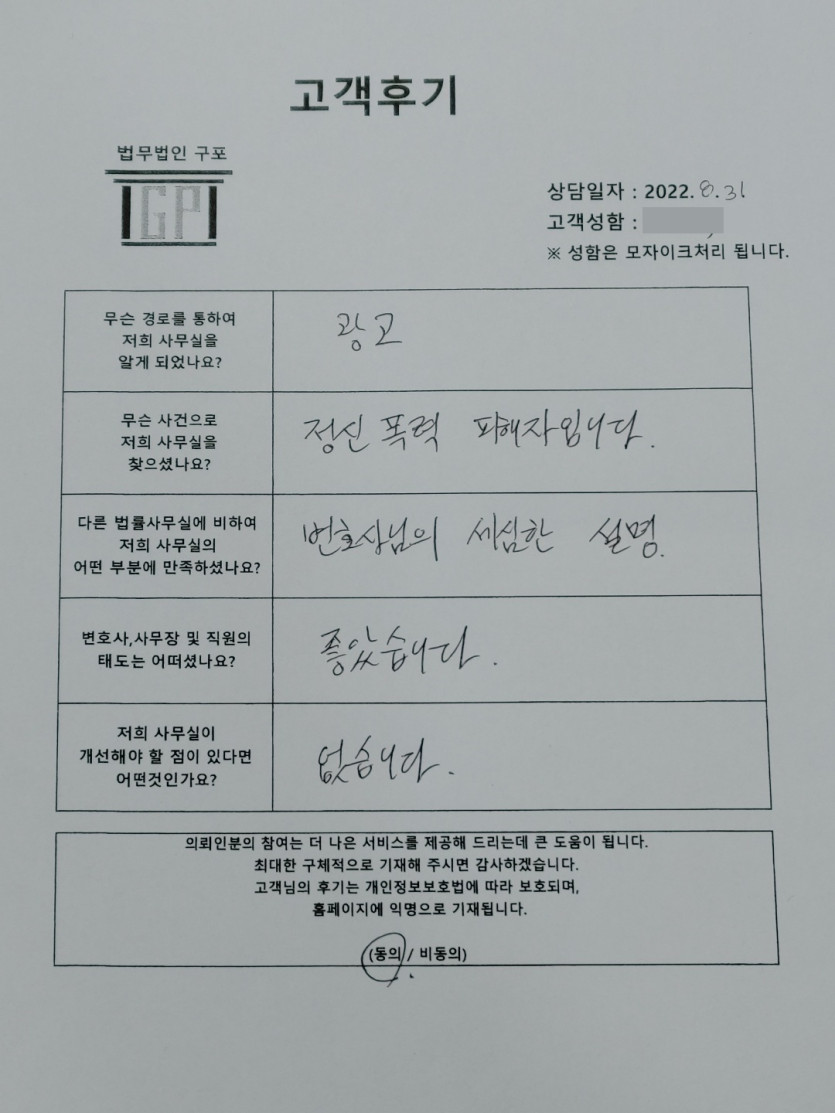 고객후기
법무법인 구포
GP
상담일자 : 2022. 8. 31
고객성함 :
※ 성함은 모자이크처리 됩니다.
무슨 경로를 통하여
저희 사무실을
알게 되었나요?
광고
무슨 사건으로
저희 사무실을
찾으셨나요?
정신 폭력 피해자입니다.
다른 법률사무실에 비하여
저희 사무실의
어떤 부분에 만족하셨나요?
변호상님의 세심한 설명.
변호사,사무장 및 직원의
태도는 어떠셨나요?
좋았습니다.
저희 사무실이
개선해야 할 점이 있다면
어떤것인가요?
없습니다.
의뢰인분의 참여는 더 나은 서비스를 제공해 드리는데 큰 도움이 됩니다.
최대한 구체적으로 기재해 주시면 감사하겠습니다.
고객님의 후기는 개인정보보호법에 따라 보호되며,
홈페이지에 익명으로 기재됩니다.
(동의 / 비동의)